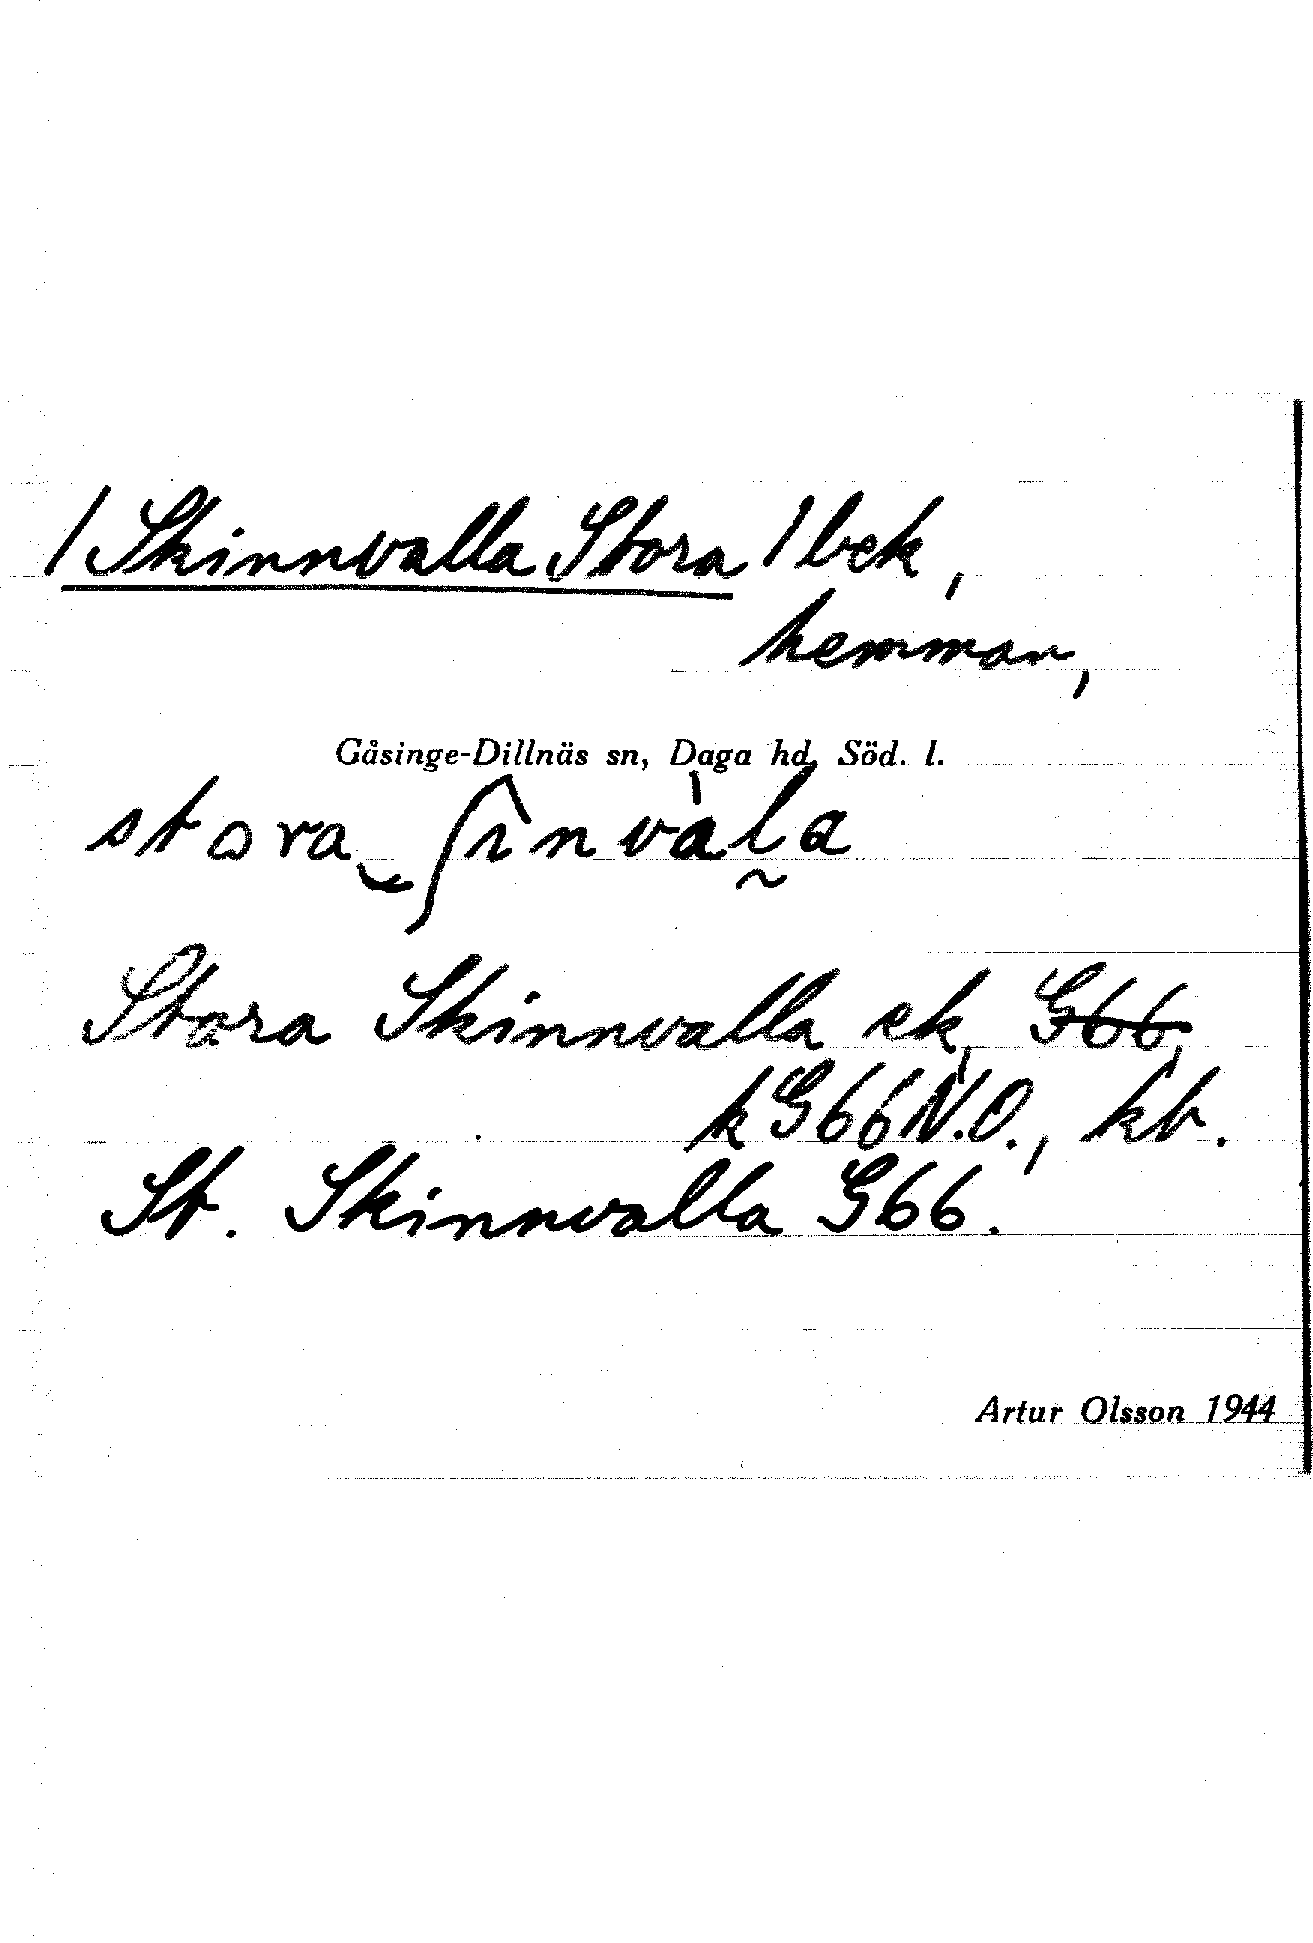 /Skinnvalla Stora/ bek,
hemman,
Gåsinge-Dillnäs sn, Daga hd, Söd. l.
stora ʃinvàla
Stora Skinnvalla ek, G66,
k G66 N.O., kb.
St. Skinnvalla G66.
Artur Olsson 1944